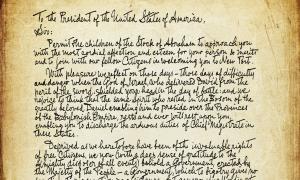 To the President of the United States of America.
Sir:
Permit the children of the Stock of Abraham to approach you
with the most cordial affection and esteem for your person & merits
and to join with our fellow Citizens in welcoming you to New Port.
With pleasure we reflect on those days - those days of difficulty
and danger when the God of Israel, who delivered David from the
peril of the sword, shielded your head in the day of battle: and we
rejoice to think that the same Spirit who rested in the Bosom of the
greatly beloved Daniel enabling him to preside over the Provinces
of the Babylonish Empire, rests and ever will rest upon you,
enabling you to discharge the arduous duties of Chief Magistrate in
these States.
Deprived as we heretofore have been of the invaluable rights
of free Citizens, we now (with a deep sense of gratitude to the
Almighty disposer of all events) behold a Government, erected by
the Majesty of the People - a Government, which to bigotry gives no